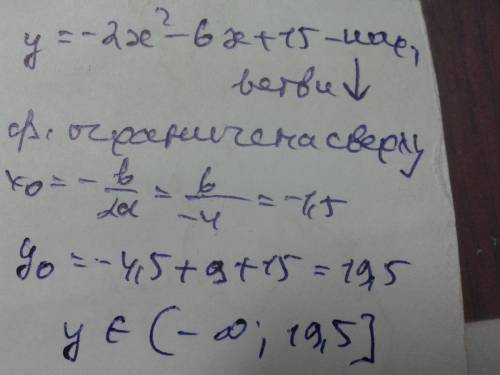 y = -2x² - 6x + 15 - пар,
ветви ↓
ф. ограничена сверху
x₀ = -b/2a = 6/-4 = -1,5
y₀ = -4,5 + 9 + 15 = 19,5
y ∈ (-∞; 19,5]